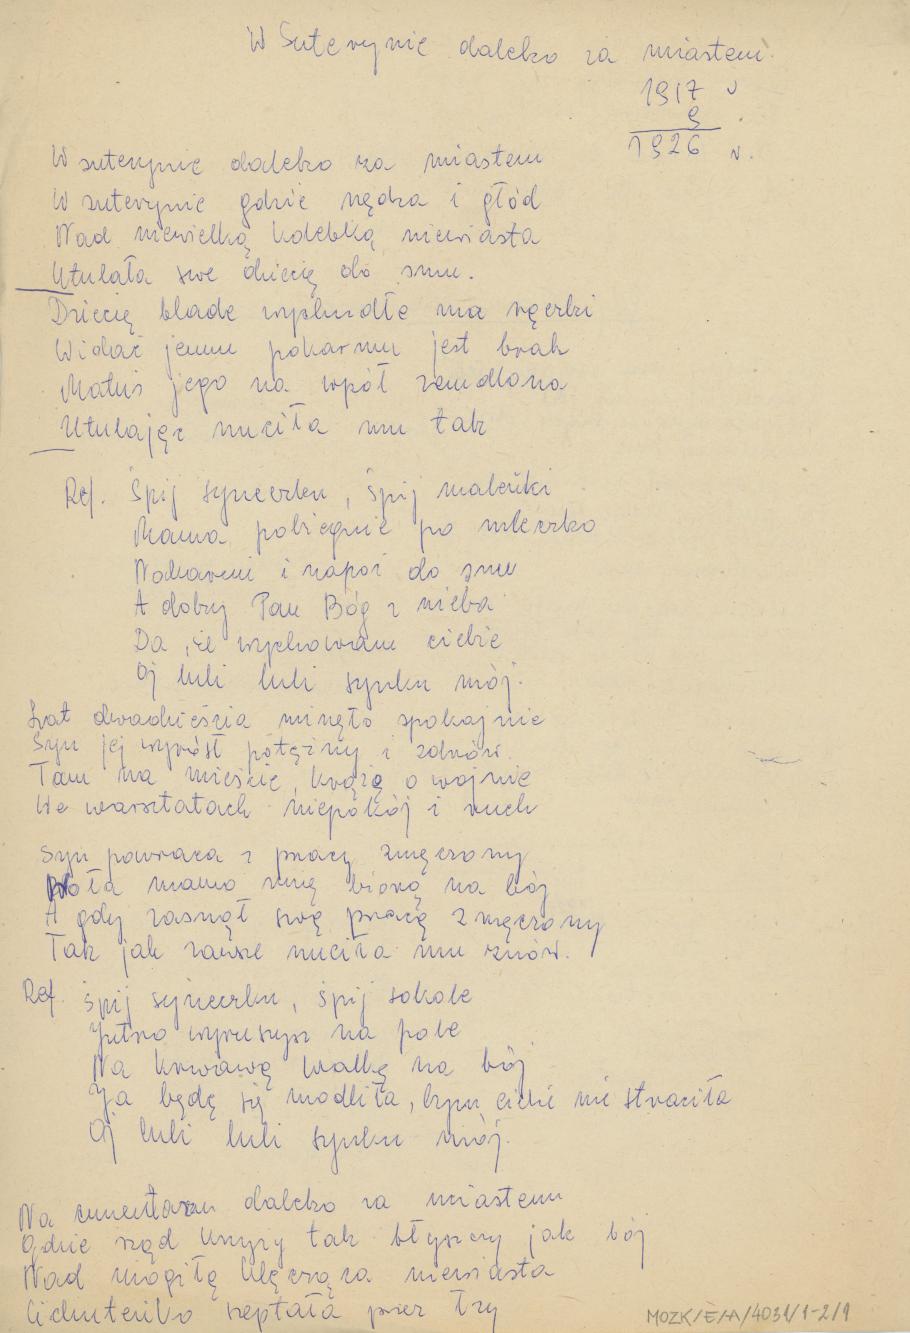 W Suterynie daleko za miastem.
1917 r
9
1926 r.
W suterynie daleko za miastem
W suterynie gdzie nędza i głód
Nad niewielką kolebką niewiasta
Utulała swe dziecię do snu.
Dziecię blade wychudłe ma rączki
Widać jemu pokarmu jest brak
Matuś jego na wpół zemdlona
Utulając nuciła mu tak
Ref. Śpij syneczku, śpij maleńki
Mama pobiegnie po mleczko
Nakarmi i napoi do snu
A dobry Pan Bóg z nieba
Da, że wychowam ciebie
Oj luli luli synku mój.
Lat dwadzieścia minęło spokojnie
Syn jej wyrósł potężny i zdrów.
Tam na mieście krążą o wojnie
We warsztatach niepokój i ruch
Syn powraca z pracy zmęczony
Woła mamo mnie biorą na bój
A gdy zasnął swą pracą zmęczony
Tak jak zawsze nuciła mu znów.
Ref. śpij syneczku, śpij sokole
Jutro wyruszysz na pole
Na krwawą walkę na bój
Ja będę się modliła, bym ciebie nie straciła
Oj luli luli synku mój.
Na cmentarzu daleko za miastem
Gdzie rząd krzyży tak błyszczy jak bój
Nad mogiłą klęcząca niewiasta
Cichuteńko szeptała przez łzy
MOZK/E/A/4031/1-2/1